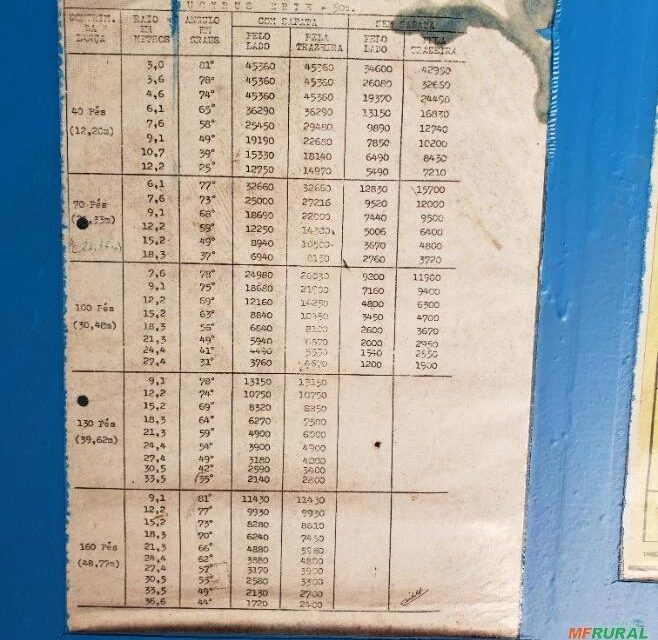 BUCYRUS ERIE . 50t.
COMPRIM. DA LANÇA RAIO EM METROS ANGULO EM GRAUS COM SAPATA SEM SAPATA
PELO LADO PELA TRAZEIRA PELO LADO PELA TRAZEIRA
3,0 81° 45360 45360 34600 42950
3,6 78° 45360 45360 26080 32660
4,6 74° 45360 45360 19370 24490
40 Pés 6,1 65° 36290 36290 13150 16830
(12,20m) 7,6 58° 25450 29480 9890 12740
9,1 49° 19190 22680 7850 10200
10,7 39° 15330 18140 6490 8430
12,2 25° 12750 14970 5490 7210
6,1 77° 32660 32660 12830 15700
70 Pés 7,6 73° 25000 27216 9520 12000
9,1 68° 18690 22000 7440 9500
12,2 59° 12250 5006 6400
15,2 49° 8940 10500 3670 4800
18,3 37° 6940 8130 2760 3720
7,6 78° 24980 26030 9200 11900
9,1 75° 18680 21900 7160 9400
12,2 69° 12160 14250 4800 6300
100 Pés 15,2 63° 8840 10450 3450 4700
(30,48m) 18,3 56° 6840 8100 2600 3670
21,3 49° 5940 2000 2950
24,4 41° 4490 1540 2350
27,4 31° 3760 1200 1900
9,1 78° 13150 13150
12,2 74° 10750 10750
15,2 69° 8320 8850
130 Pés 18,3 64° 6270 7500
(39,62m) 21,3 59° 4900 6000
24,4 54° 3900 4900
27,4 49° 3180 4000
30,5 42° 2590 3400
33,5 35° 2140 2800
9,1 81° 11430 11430
12,2 77° 9930 9930
15,2 73° 8280 8610
18,3 70° 6240 7430
160 Pés 21,3 66° 4880 5980
(48,77m) 24,4 62° 3880 4800
27,4 57° 3170 3900
30,5 53° 2560 3300
33,5 49° 2130 2700
36,6 44° 1720 2400
MFRURAL